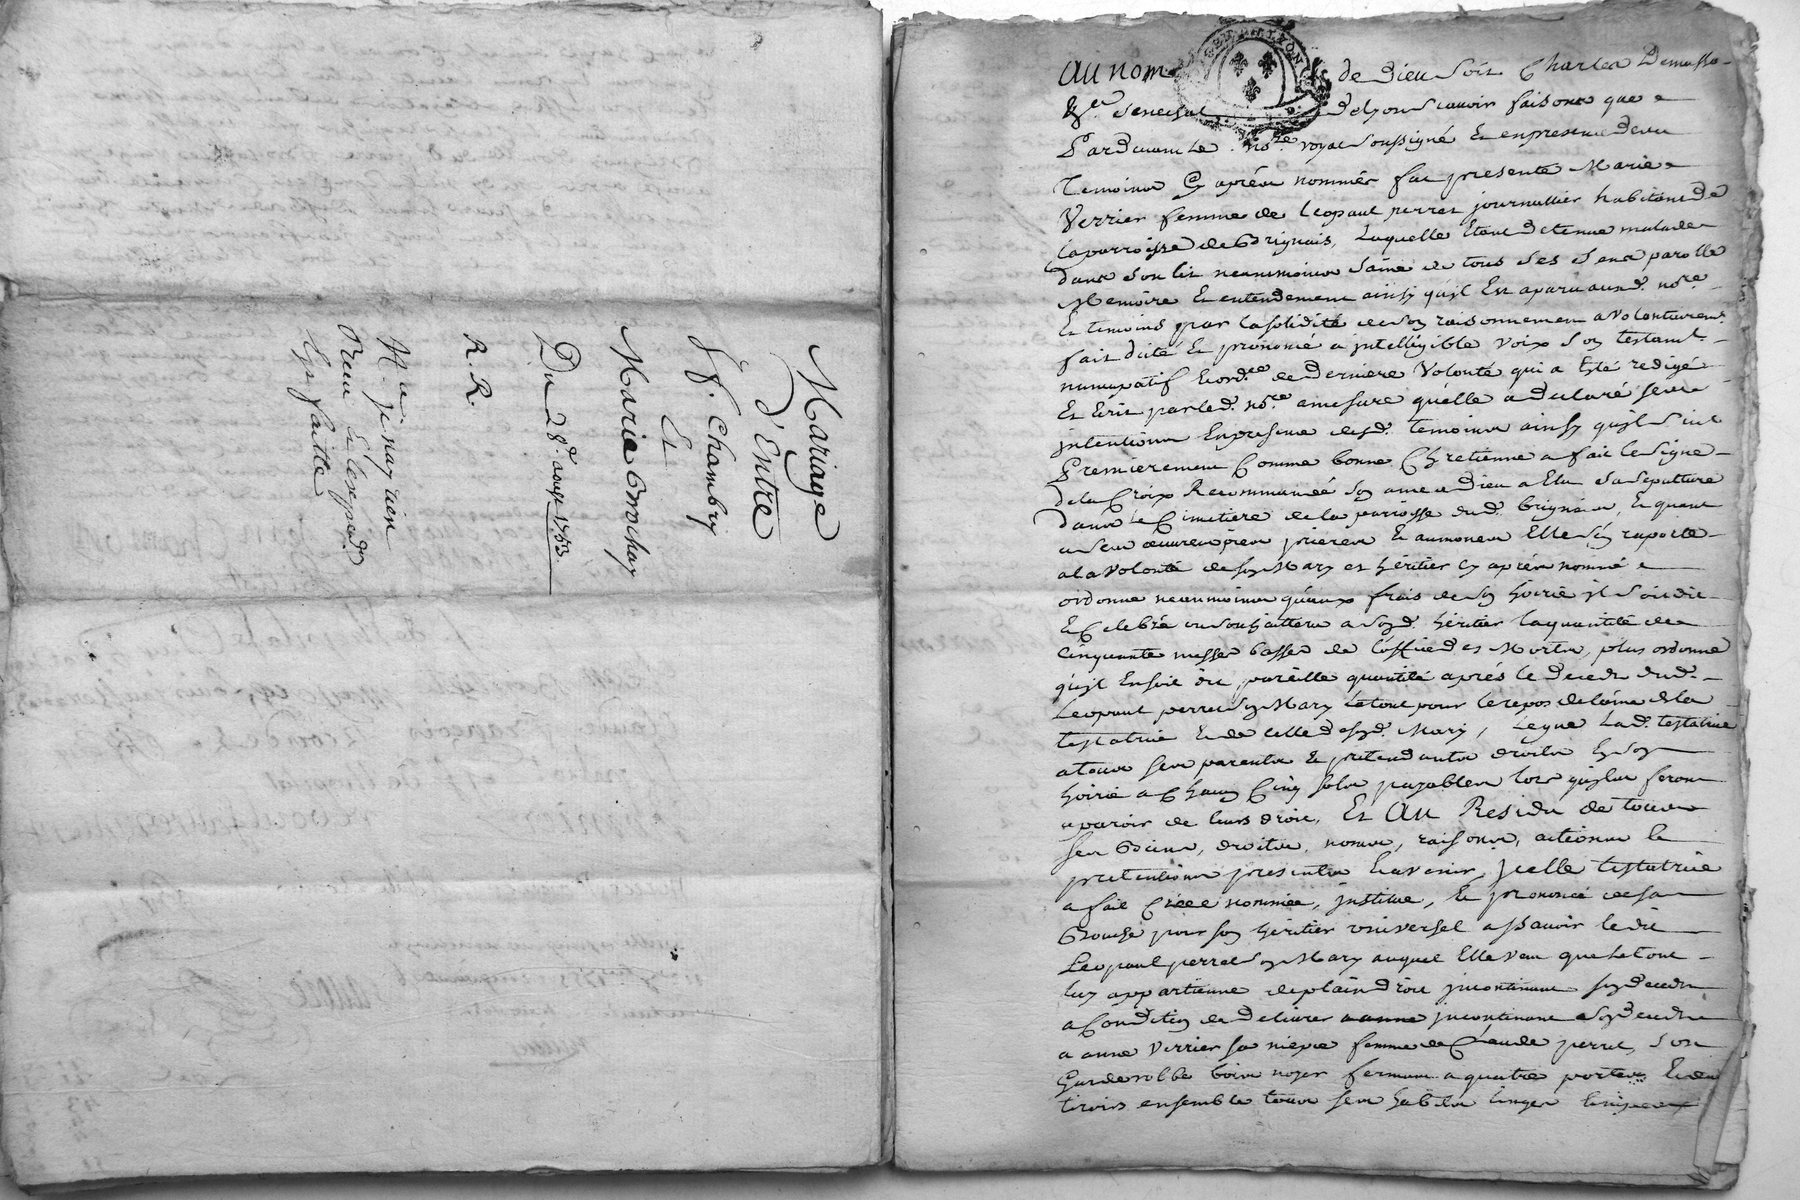 Mariage
d'Entre
f. Chambry
Et
Marie Brochay
Du 28e. aoust 1753
R. R.
N.a je nay rien
Receu & l'expéd.
Est faitte
GEN DE LYON
Au nom de Dieu soit Charles Demasso
Sénéchal de Lyon Scavoir faisons que
Pardevant Le no.re royal soussigné Et en presence de
Temoins Cy aprés nommés fut presente Marie
Verrier femme de Leopaul perret journallier habitant de
la parroisse de Brignais, Laquelle Etant detenue malade
dans son lit neanmoins saine de tous ses sens parolle
Memoire Et entendement ainsy qu'il Est aparu aud. no.re
Et temoins par la solidité de son raisonnement a volontairemt.
fait dicté Et prononcé a jntelligible voix son testamt.
nuncupatif Et ord.ce de derniere Volonté qui a Esté redigé
Et Ecrit par led. no.re a mesure qu'elle a declaré ses
jntentions En presence desd. temoins ainsy qu'il suit
Premierement Comme bonne Chretienne a fait le signe
de la Croix Recommandé son ame a Dieu a Elu sa sepulture
dans le Cimetiere de la paroisse dud. brignais, Et quant
a ses œuvres pies prieres Et aumones Elle s'en raporte
a la volonté de son Mary et héritier cy aprés nommé
ordonne neanmoins qu'aux frais de son hoirie il soit dit
Et Celebré au souhaitte a sond. héritier la quantité de
Cinquante messes basses de l'office des Morts, plus ordonne
qu'il En soit dit pareille quantité aprés le deceds dud.
Leopaul perret son Mary Le tout pour le repos de l'ame de la
testatrice Et de celle de sond. Mary, Legue Lad. testatrice
a tous ses parents Et pretendants droits En son
hoirie a Chacun Cinq sols payables lors qu'ils feront
aparoir de leurs droit, Et Au Residu de tous
ses Biens, droits, noms, raisons, actions Et
pretentions presents Et avenir, jcelle testatrice
a fait Créée nommée, jnstitue, Et prononcé de sa
Bouche pour son héritier universel a sçavoir ledit
Leopaul perret son Mary auquel Elle veut que Le tout
luy appartienne de plain droit jncontinant son deceds
a Condition de delivrer jncontinant son deceds
a anne Verrier sa niepce femme de Claude perret, son
garderobbe bois noyer fermant a quatre portes Et deux
tiroirs ensemble tous ses habits linges